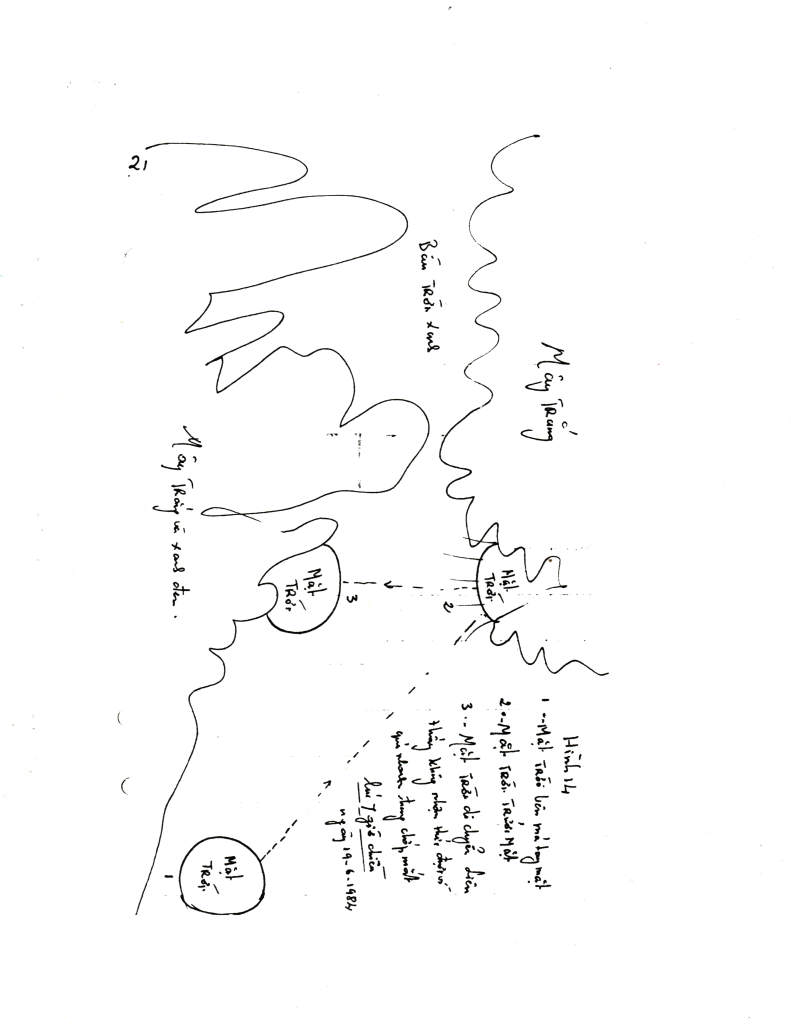 21
Mây Trắng
Bầu Trời xanh
Mây Trắng và xanh đen.
Mặt
Trời
3
Mặt
Trời.
2
Mặt
Trời.
1
Hình 14
1 -- Mặt Trời bên má tay mặt
2 -- Mặt Trời Trước Mặt
3 -- Mặt Trời di chuyển đến
thẳng không nhận thấy được vì
quá nhanh trong chớp mắt
lúc 7 giờ chiều
ngày 19-6-1984